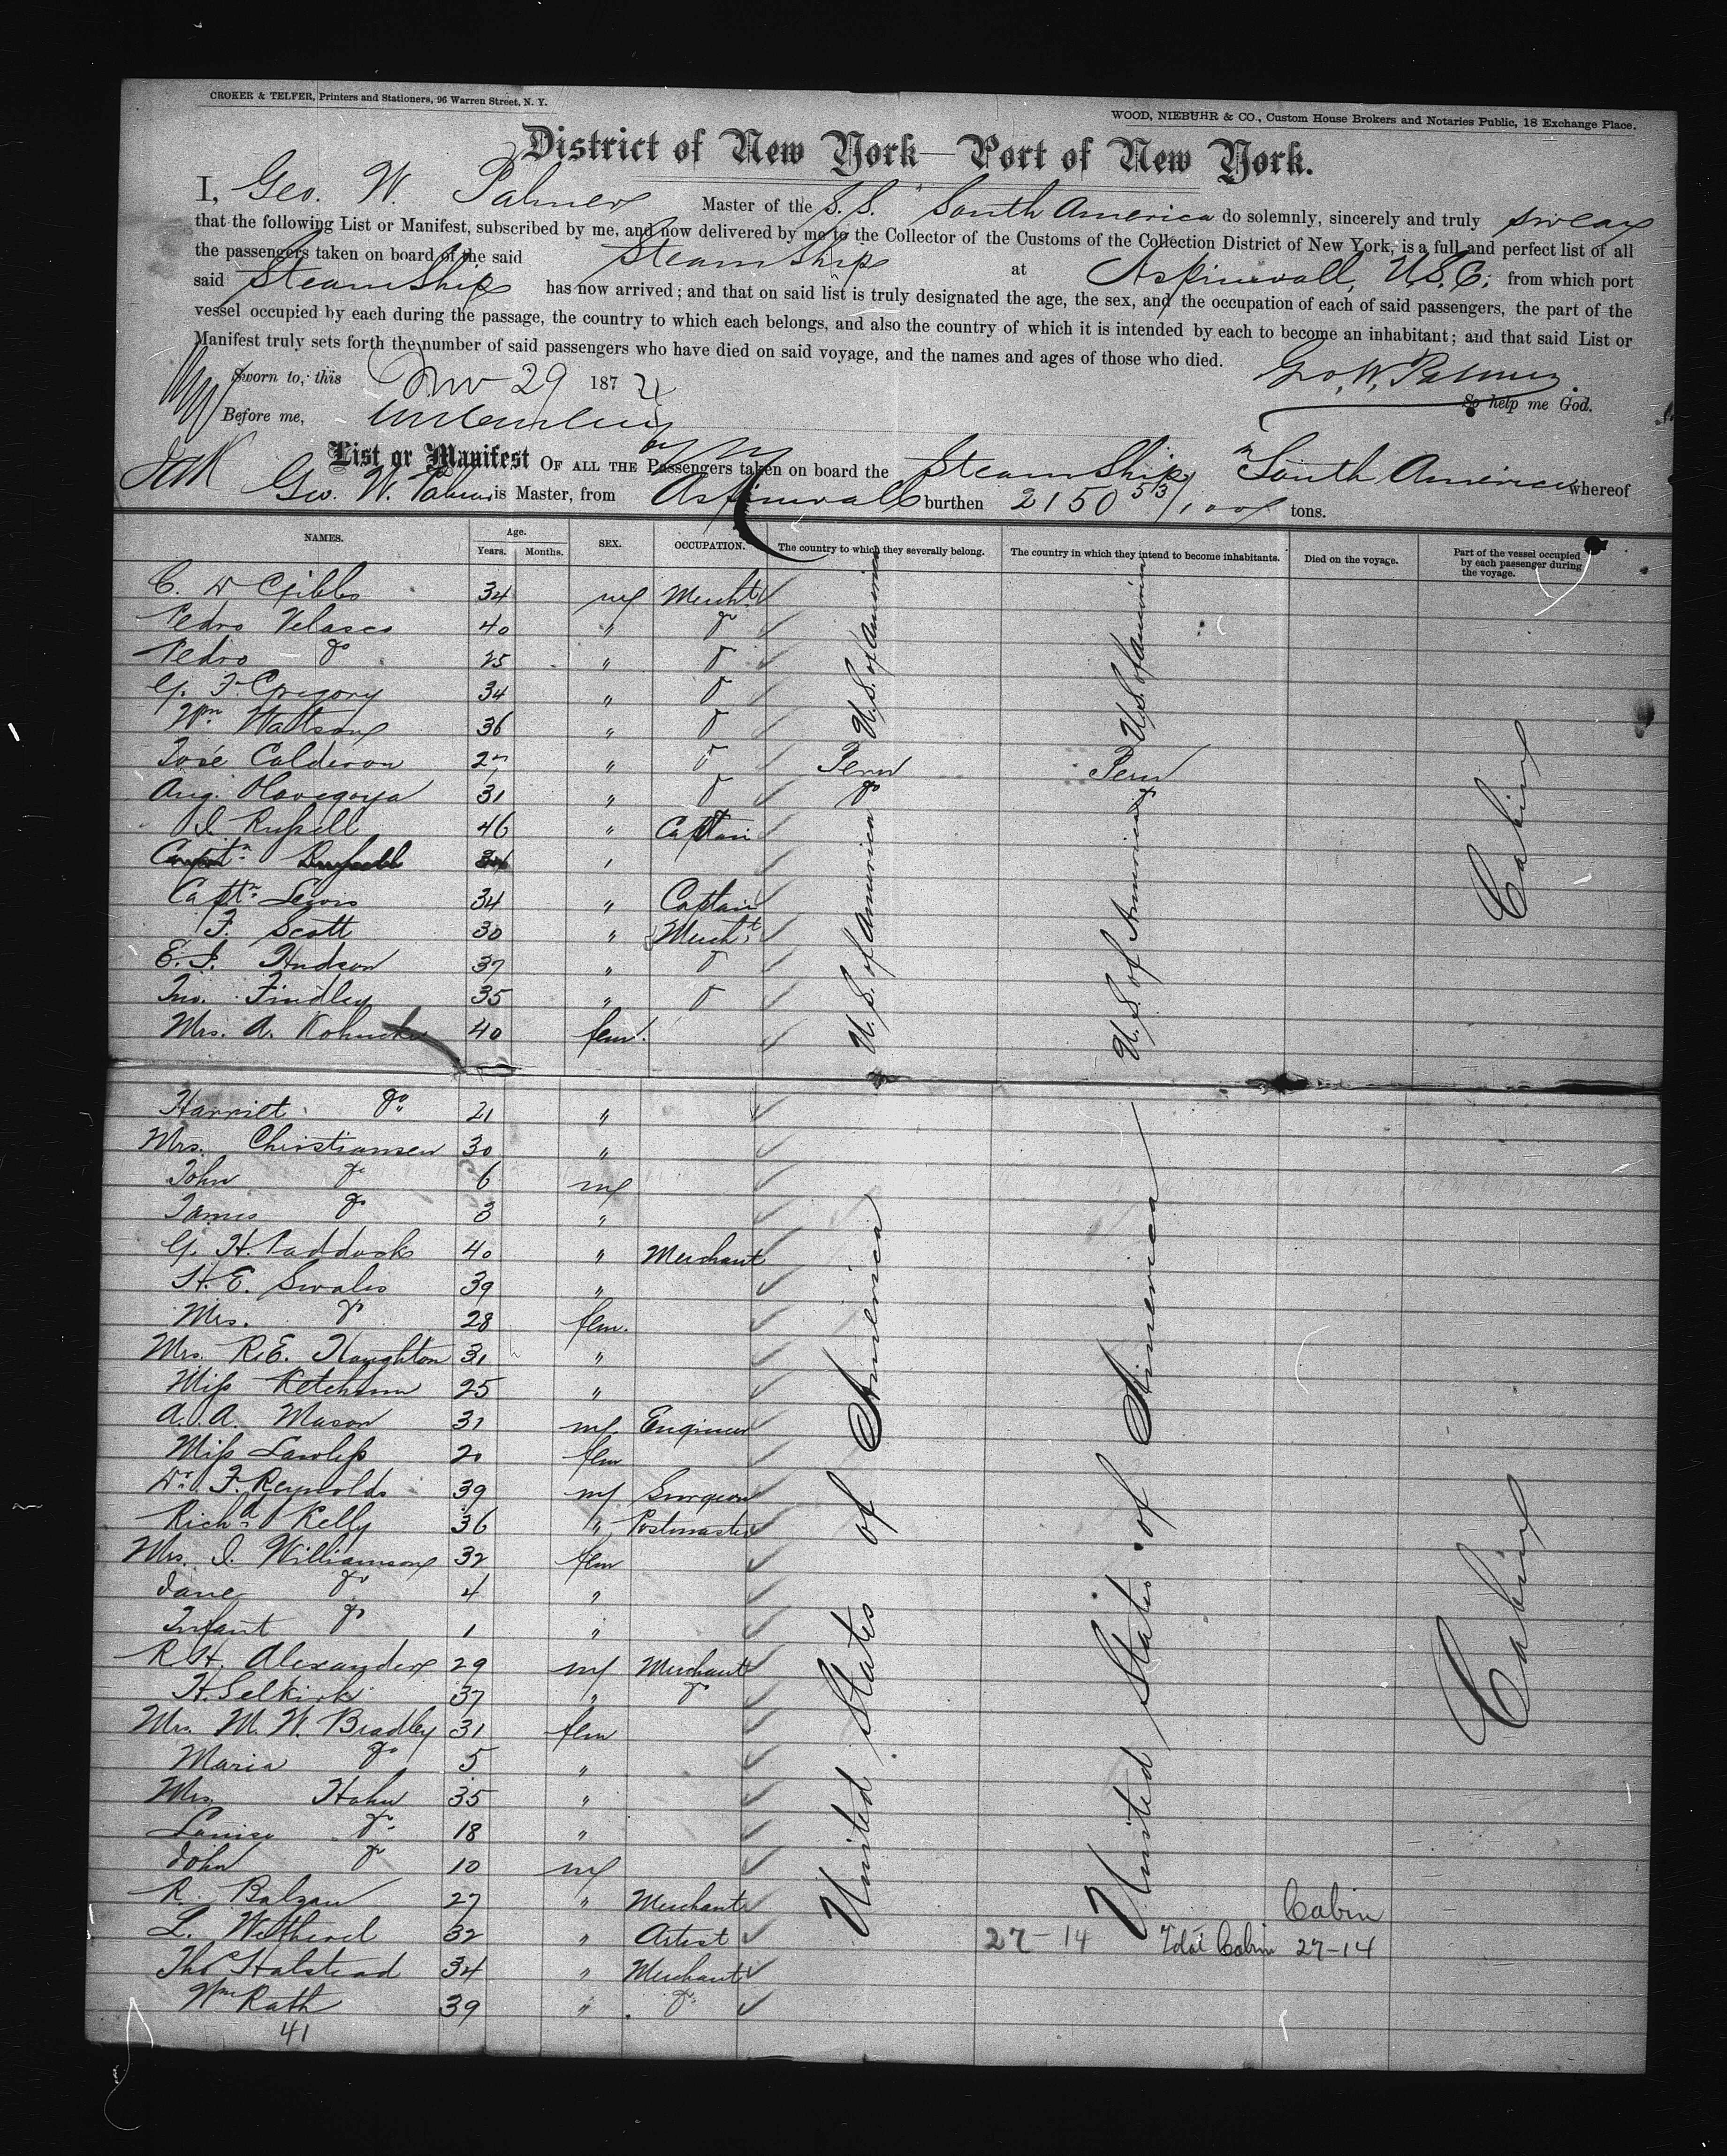 CROKER & TELFER, Printers and Stationers, 96 Warren Street, N. Y.
WOOD, NIEBUHR & CO., Custom House Brokers and Notaries Public, 18 Exchange Place.
District of New York—Port of New York.
I, Geo. W. Palmer Master of the S.S. South America do solemnly, sincerely and truly swear
that the following List or Manifest, subscribed by me, and now delivered by me to the Collector of the Customs of the Collection District of New York, is a full and perfect list of all
the passengers taken on board of the said Steam Ship at Aspinwall, U.S.C; from which port
said Steam Ship has now arrived; and that on said list is truly designated the age, the sex, and the occupation of each of said passengers, the part of the
vessel occupied by each during the passage, the country to which each belongs, and also the country of which it is intended by each to become an inhabitant; and that said List or
Manifest truly sets forth the number of said passengers who have died on said voyage, and the names and ages of those who died.
Sworn to, this Nov 29 187 Geo. W. Palmer
Before me, So help me God.
List or Manifest OF ALL THE Passengers taken on board the Steam Ship South America whereof
Geo. W. Palmer is Master, from Aspinwall burthen 2150 53/100 tons.
NAMES. Age. Years. Months. SEX. OCCUPATION. The country to which they severally belong. The country in which they intend to become inhabitants. Died on the voyage. Part of the vessel occupied by each passenger during the voyage.
C. W Gibbs 34 m Mercht U.S. of America U.S. of America Cabin
Pedro Velasco 40 " do
Pedro do 25 " do
G. F. Gregory 34 " do
Wm. Watson 36 " do
José Calderon 27 " do Peru Peru
Aug. Olavegoya 31 " do do do
I. Russell 46 " Captain U.S. of America U.S. of America
Captn. Russell 34 "
Captn. Lewis 34 " Captain
F. Scott 30 " Mercht
E. I. Hudson 37 " do
Jno. Findley 35 " do
Mrs. A. 40 fem.
Harriet do 21 "
Mrs. Christiansen 30 "
John do 6 m
James do 3 "
G. H. Paddock 40 " Merchant
H. E. Swales 39 "
Mrs. do 28 fem.
Mrs. R.E. Houghton 31 "
Miss Ketchum 25 "
A. A. Mason 31 m Engineer
Miss Lawless 20 fem
Dr. F. Reynolds 39 m Surgeon
Richd. Kelly 36 " Postmaster
Mrs. I. Williamson 32 fem
Jane do 4 "
Infant do 1 "
R. H. Alexander 29 m Merchant
H. Selkirk 37 " do
Mrs. M. W. Bradley 31 fem
Maria do 5 "
Mrs. Hahn 35 "
Louisa do 18 "
John do 10 m
United States of America United States of America Cabin
R. Balzan 27 " Merchant Cabin
L. Wetherel 32 " Artist 27-14 Total Cabin 27-14
Thos Halstead 34 " Merchant
Wm Rath 39 " do
41